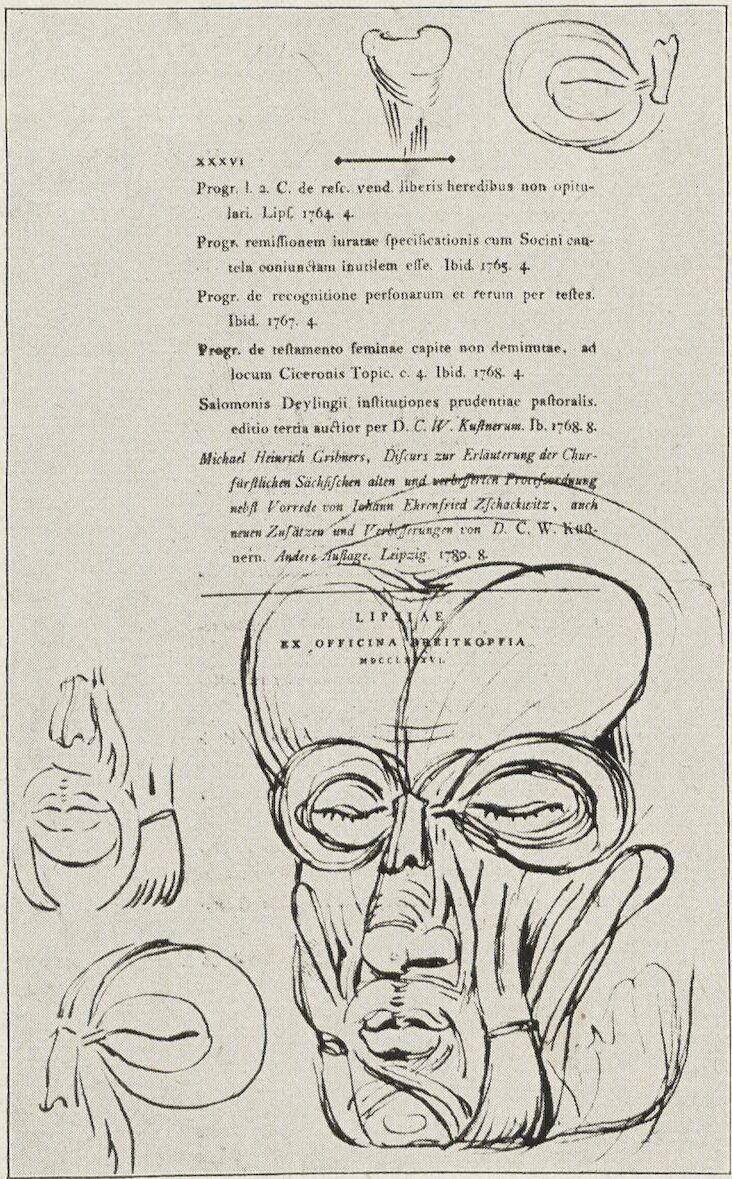 XXXVI
Progr. l. 2. C. de reſc. vend. liberis heredibus non opitu-
lari. Lipſ. 1764. 4.
Progr. remiſſionem iuratae ſpecificationis cum Socini cau-
tela coniunctam inutilem eſſe. Ibid. 1765. 4.
Progr. de recognitione perſonarum et rerum per teſtes.
Ibid. 1767. 4.
Progr. de teſtamento feminae capite non deminutae, ad
locum Ciceronis Topic. c. 4. Ibid. 1768. 4.
Salomonis Deylingii inſtitutiones prudentiae paſtoralis.
editio tertia auctior per D. C. W. Kuſtnerum. Ib. 1768. 8.
Michael Heinrich Gribners, Diſcurs zur Erläuterung der Chur-
fürſtlichen Sächſiſchen alten und verbeſſerten Proceſsordnung
nebſt Vorrede von Iohann Ehrenfried Zſchackwitz, auch
neuen Zuſätzen und Verbeſſerungen von D. C. W. Küſt-
nern. Andere Auflage. Leipzig. 1780. 8.
LIPSIAE
EX OFFICINA BREITKOPFIA